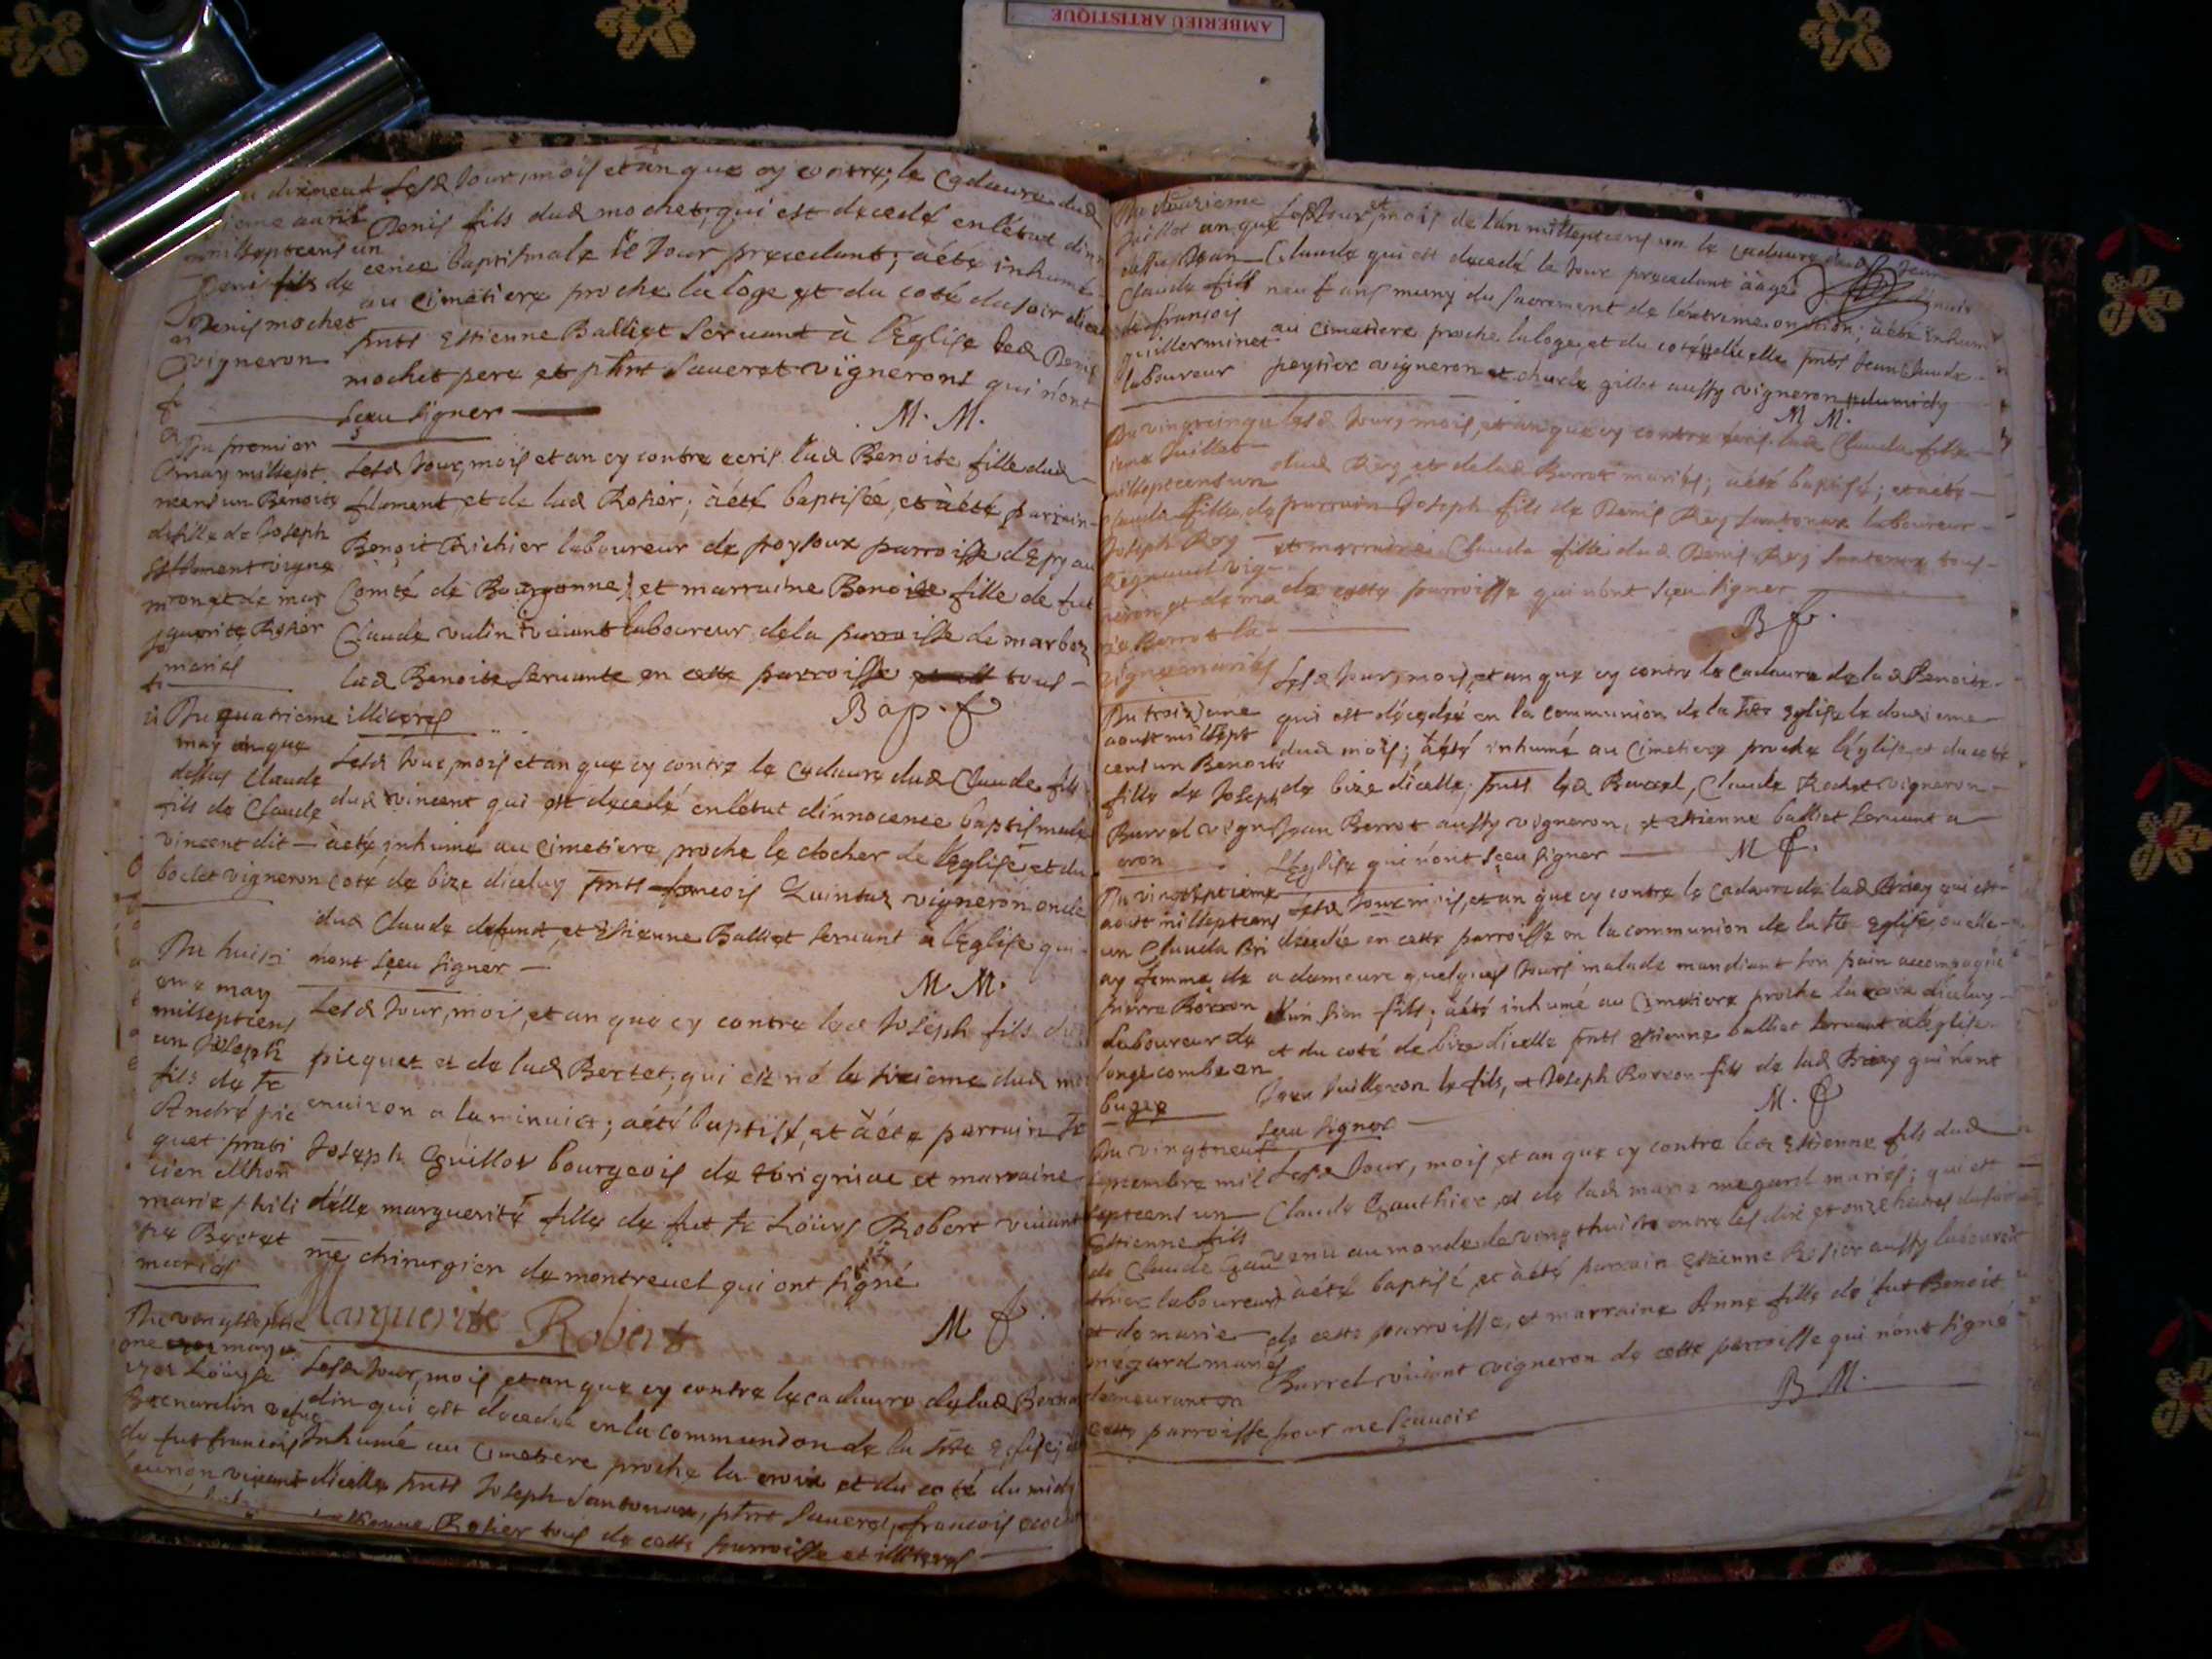 AMBERIEU ARTISTIQUE
dixneuf
auril
millseptcens un
Denis fils de
Denis mochet
vigneron
Lesd Jour, mois et an que cy contre, le Cadaure dud
Denis fils dud mochet, qui est decedé en létat dinno
cence baptismale le Jour precedant; àété inhumé
au Cimetiere proche la loge et du coté du soir dicel
pnts Estienne Balliet seruant à l'Eglise led Denis
mochet pere et phbrt Sauerat vignerons qui nont
sceu signer
M. M.
Du premier
may millsept
cens un Benoite
fille de Joseph
filament vigne
ron et de mar
guerite Rosier
mariés
Lesd Jour, mois et an cy contre ecris lad Benoite fille dud
filament et de lad Rosier; àété baptisée, et àété parrain
Benoit Trichier laboureur de poysoux parroisse dEpy au
Comté de Bourgonne, et marraine Benoite fille de fut
Claude vulin viuant laboureur dela parroisse de marboz
lad Benoite seruante en cette parroisse tous
illiterés
Bap. f
Du quatrieme
may an que
dessus Claude
fils de Claude
vincent dit
boclet vigneron
Lesd Jour, mois et an que cy contre le Cadaure dud Claude fils
dud vincent qui est decedé en létat dinnocence baptismale
àeté inhumé au Cimetiere proche le clocher de l'Eglise et du
coté de bize diceluy pnts francois Quintaz vigneron oncle
dud Claude defunt, et Estienne Balliet seruant a l'Eglise qui
nont sceu signer
M. M.
Du huisi
eme may
millseptcens
un Joseph
fils de Sr
André pic
quet prati
cien Elhon
marie phili
pe Bertet
mariés
Lesd Jour, mois, et an que cy contre led Joseph fils du
picquet et de lad Bertet, qui est né le sixieme dud mo
enuiron a la minuict; aété baptisé, et àété parrain Sr
Joseph Guillot bourgeois de Trigniac et marraine
délle marguerite fille de fut Sr Loüys Robert viuant
me chirurgien de montreuel qui ont signé
Marguerite Robert
M f
Du vingtseptie
me may
Loüyse
Bernardin vefue
de fut francois
viuant
Lesd Jour, mois et an que cy contre le cadaure de lad Bernar
din qui est decedée en la communion de la Ste Eglise,
Inhumé au Cimetiere proche la croix et du coté du midy
dicelle pnts Joseph Santonax, phbrt Sauerat, francois
Estienne Rosier tous de cette parroisse et illiterés
Du douzieme
Juillet an que
dessus Jean
Claude fils
de francois
guillerminet
laboureur
Lesd Jour et mois de lan millseptcens un le cadaure dud Jean
Claude qui est decedé le Jour precedant àagé
neuf ans muny du sacrement de lextreme onction; àété inhumé
au Cimetiere proche la loge, et du coté dicelle pnts Jean Claude
peytier vigneron et charle gillet aussy vigneron du midy
M M.
Du vingtcinqu
ieme Juillet
millseptcens un
Clauda fille de
Joseph Rey
Regnaud vig
neron et de ma
rie Berrot la
vigne mariés
Lesd Jour, mois, et an que cy contre lad Clauda fille
dud Rey et de lad Berrot mariés; àété baptisé; et àété
parrain Joseph fils de Denis Rey Santonax laboureur
et marraine Clauda fille dud Denis Rey Santonax tous
de cette parroisse qui nont sceu signer
B f.
Du troizieme
aoust millsept
cens un Benoite
fille de Joseph
Burrel vign
eron
Lesd Jour, mois, et an que cy contre le cadaure de lad Benoite
qui est décedé en la communion de la Ste Eglise le douxieme
dud mois; àété inhumé au Cimetiere proche l'Eglise et du coté
de bize dicelle; pnts led Burrel, Claude Rochet vigneron
Jean Berrot aussy vigneron, et Estienne balliet seruant a
l'Eglise qui nont sceu signer
M f.
Du vingtseptieme
aout millseptcens
un Clauda Bri
ay femme de
pierre Borron
Laboureur de
longecombe en
bugey
Lesd Jour mois, et an que cy contre le Cadaure de lad Briey qui est
decedée en cette parroisse en la communion de la Ste Eglise, ou elle
a demeure quelques Jours malade mandiant son pain accompagné
d'un sien fils; àété inhumé au Cimetiere proche la croix diceluy
et du coté de bize dicelle pnts Estienne balliet seruant aléglise
Jean Juilleron le fils, et Joseph Borron fils de lad Briey qui nont
sceu signer
M. f
Du vingtneuf
septembre mil
septcens un
Estienne fils
de Claude Gau
thier laboureur
et de marie
mégard mariés
demeurant en
cette parroisse pour me scauoir
Lesd Jour, mois et an que cy contre led Estienne fils dud
Claude Gauthier et de lad marie megard mariés; qui est
venu au monde le vingthuict entre les dix et onze heures du soir
àété baptisé, et àété parrain Estienne Rosier aussy laboureur
de cette parroisse, et marraine Anne fille de fut Benoit
Burrel viuant vigneron de cette parroisse qui nont signé
B M.